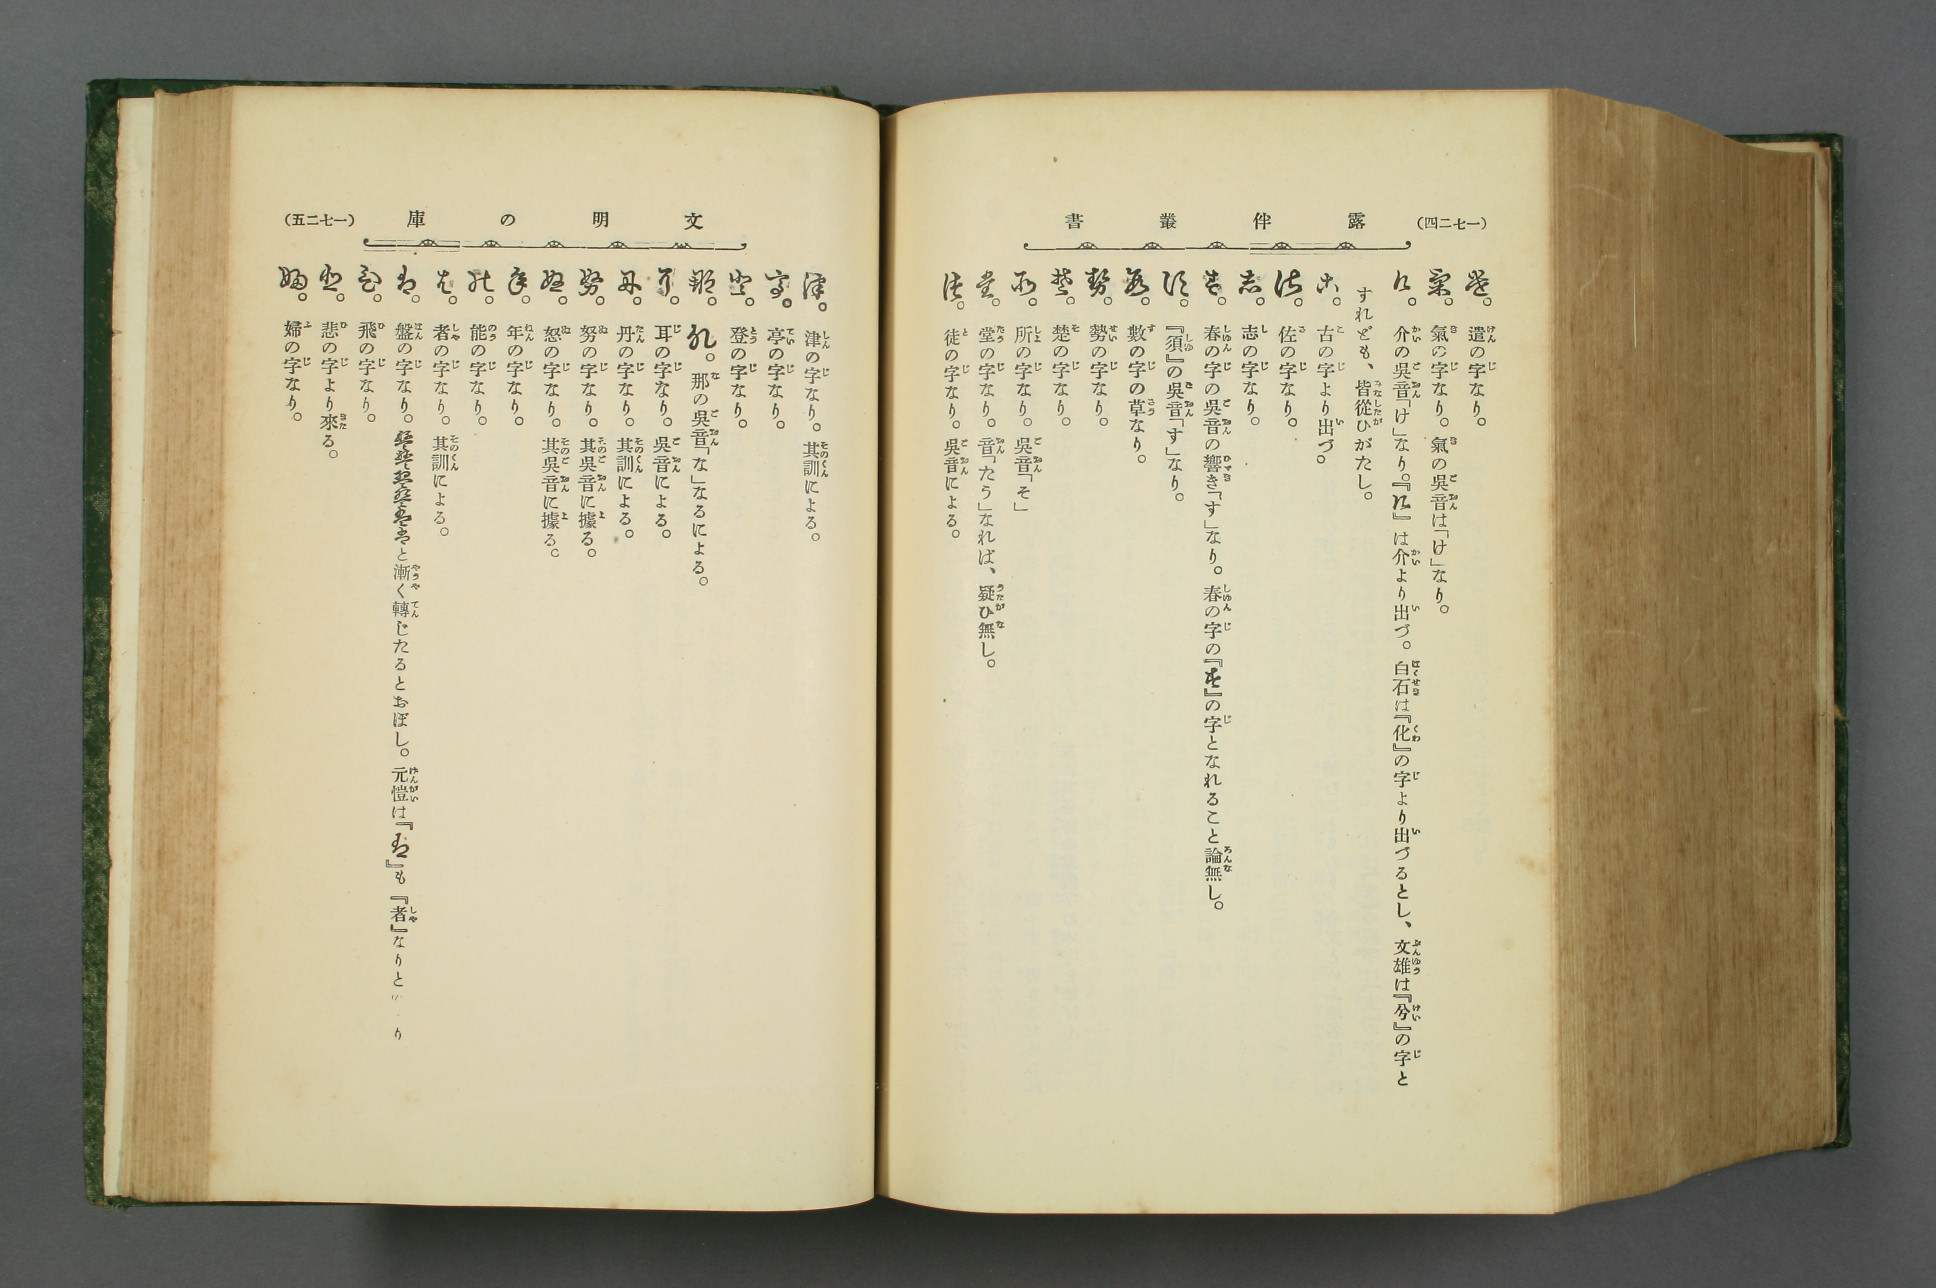 (一七二四)
露伴叢書
遣の字なり。
氣の字なり。氣の吳音は「け」なり。
介の吳音「け」なり。『』は介より出づ。白石は『化』の字より出づるとし、文雄は『兮』の字と
すれども、皆從ひがたし。
古の字より出づ。
佐の字なり。
志の字なり。
春の字の吳音の響き「す」なり。春の字の『』の字となれること論無し。
『須』の吳音「す」なり。
數の字の草なり。
勢の字なり。
楚の字なり。
所の字なり。吳音「そ」
堂の字なり。音「たう」なれば、疑ひ無し。
徒の字なり。吳音による。
文明の庫
(一七二五)
津の字なり。其訓による。
亭の字なり。
登の字なり。
那の吳音「な」なるによる。
耳の字なり。吳音による。
丹の字なり。其訓による。
努の字なり。其吳音に據る。
怒の字なり。其吳音に據る。
年の字なり。
能の字なり。
者の字なり。其訓による。
盤の字なり。と漸く轉じたるとおぼし。元愷は『』も『者』なりと
飛の字なり。
悲の字より來る。
婦の字なり。